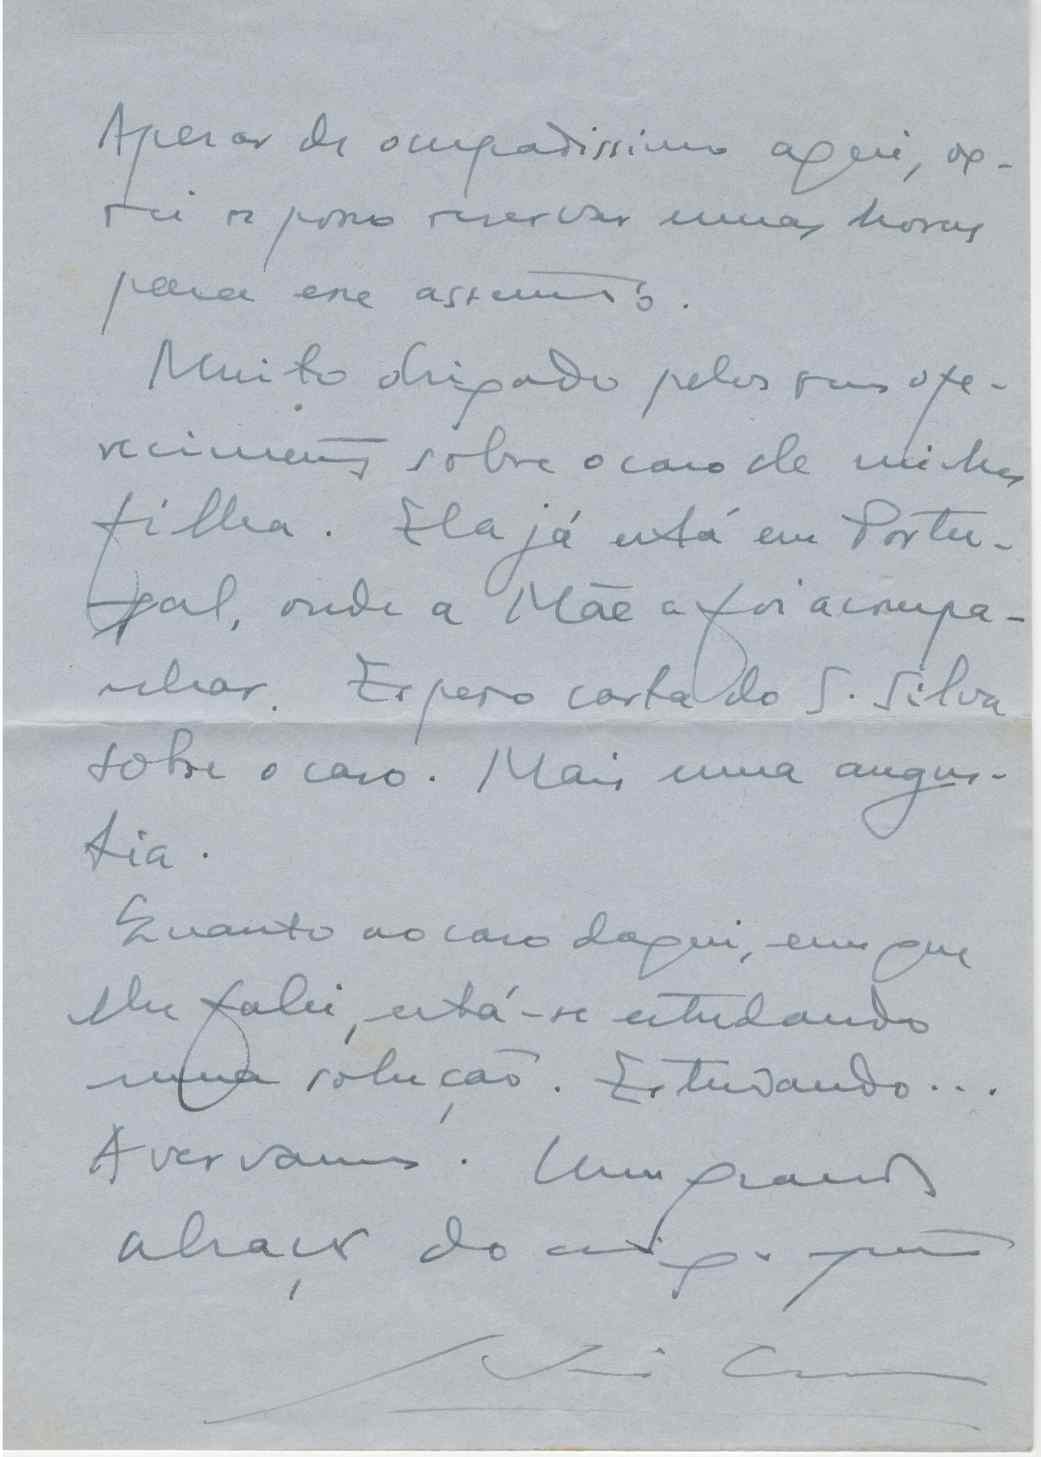 Apesar de ocupadissimo aqui, ve-
rei se posso reservar umas horas
para esse assunto.
Muito obrigado pelos seus ofe-
recimentos sobre o caso de minha
filha. Ela já está em Portu-
gal, onde a Mãe a foi acompa-
nhar. Espero carta do S. Silva
sobre o caso. Mais uma angus-
tia.
Quanto ao caso daqui, em que
lhe falei, está-se estudando
uma solução. Estudando...
A ver vamos. Um grande
abraço do